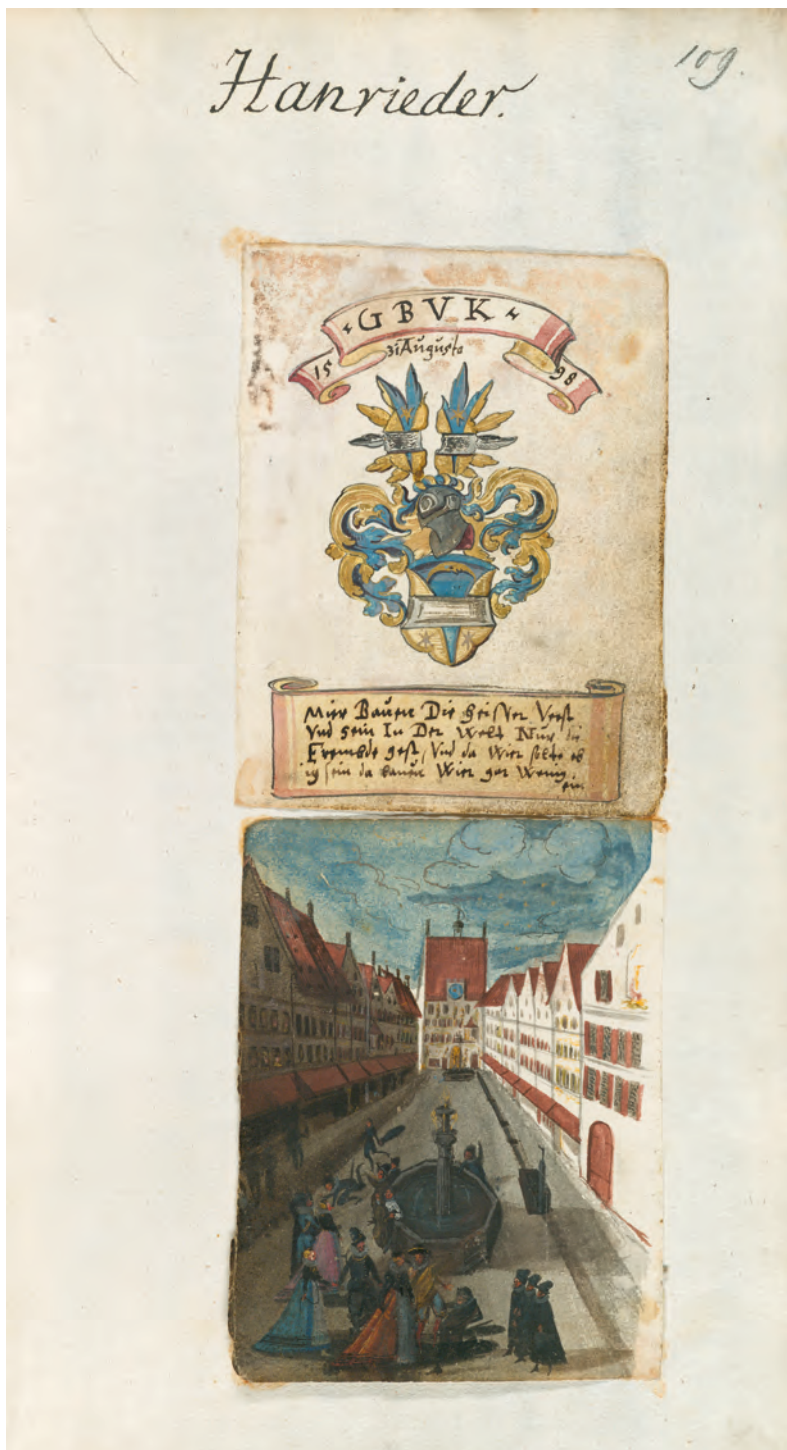 Hanrieder.
109.
G B V K
31 Augusto
15 98
Mier Bauen Die heisser Vest
Vnd sein In Der Welt Nur die
Frembde gest, Vnd da Wier solte eb
ig sein da bauen Wier gar Wenig
ein